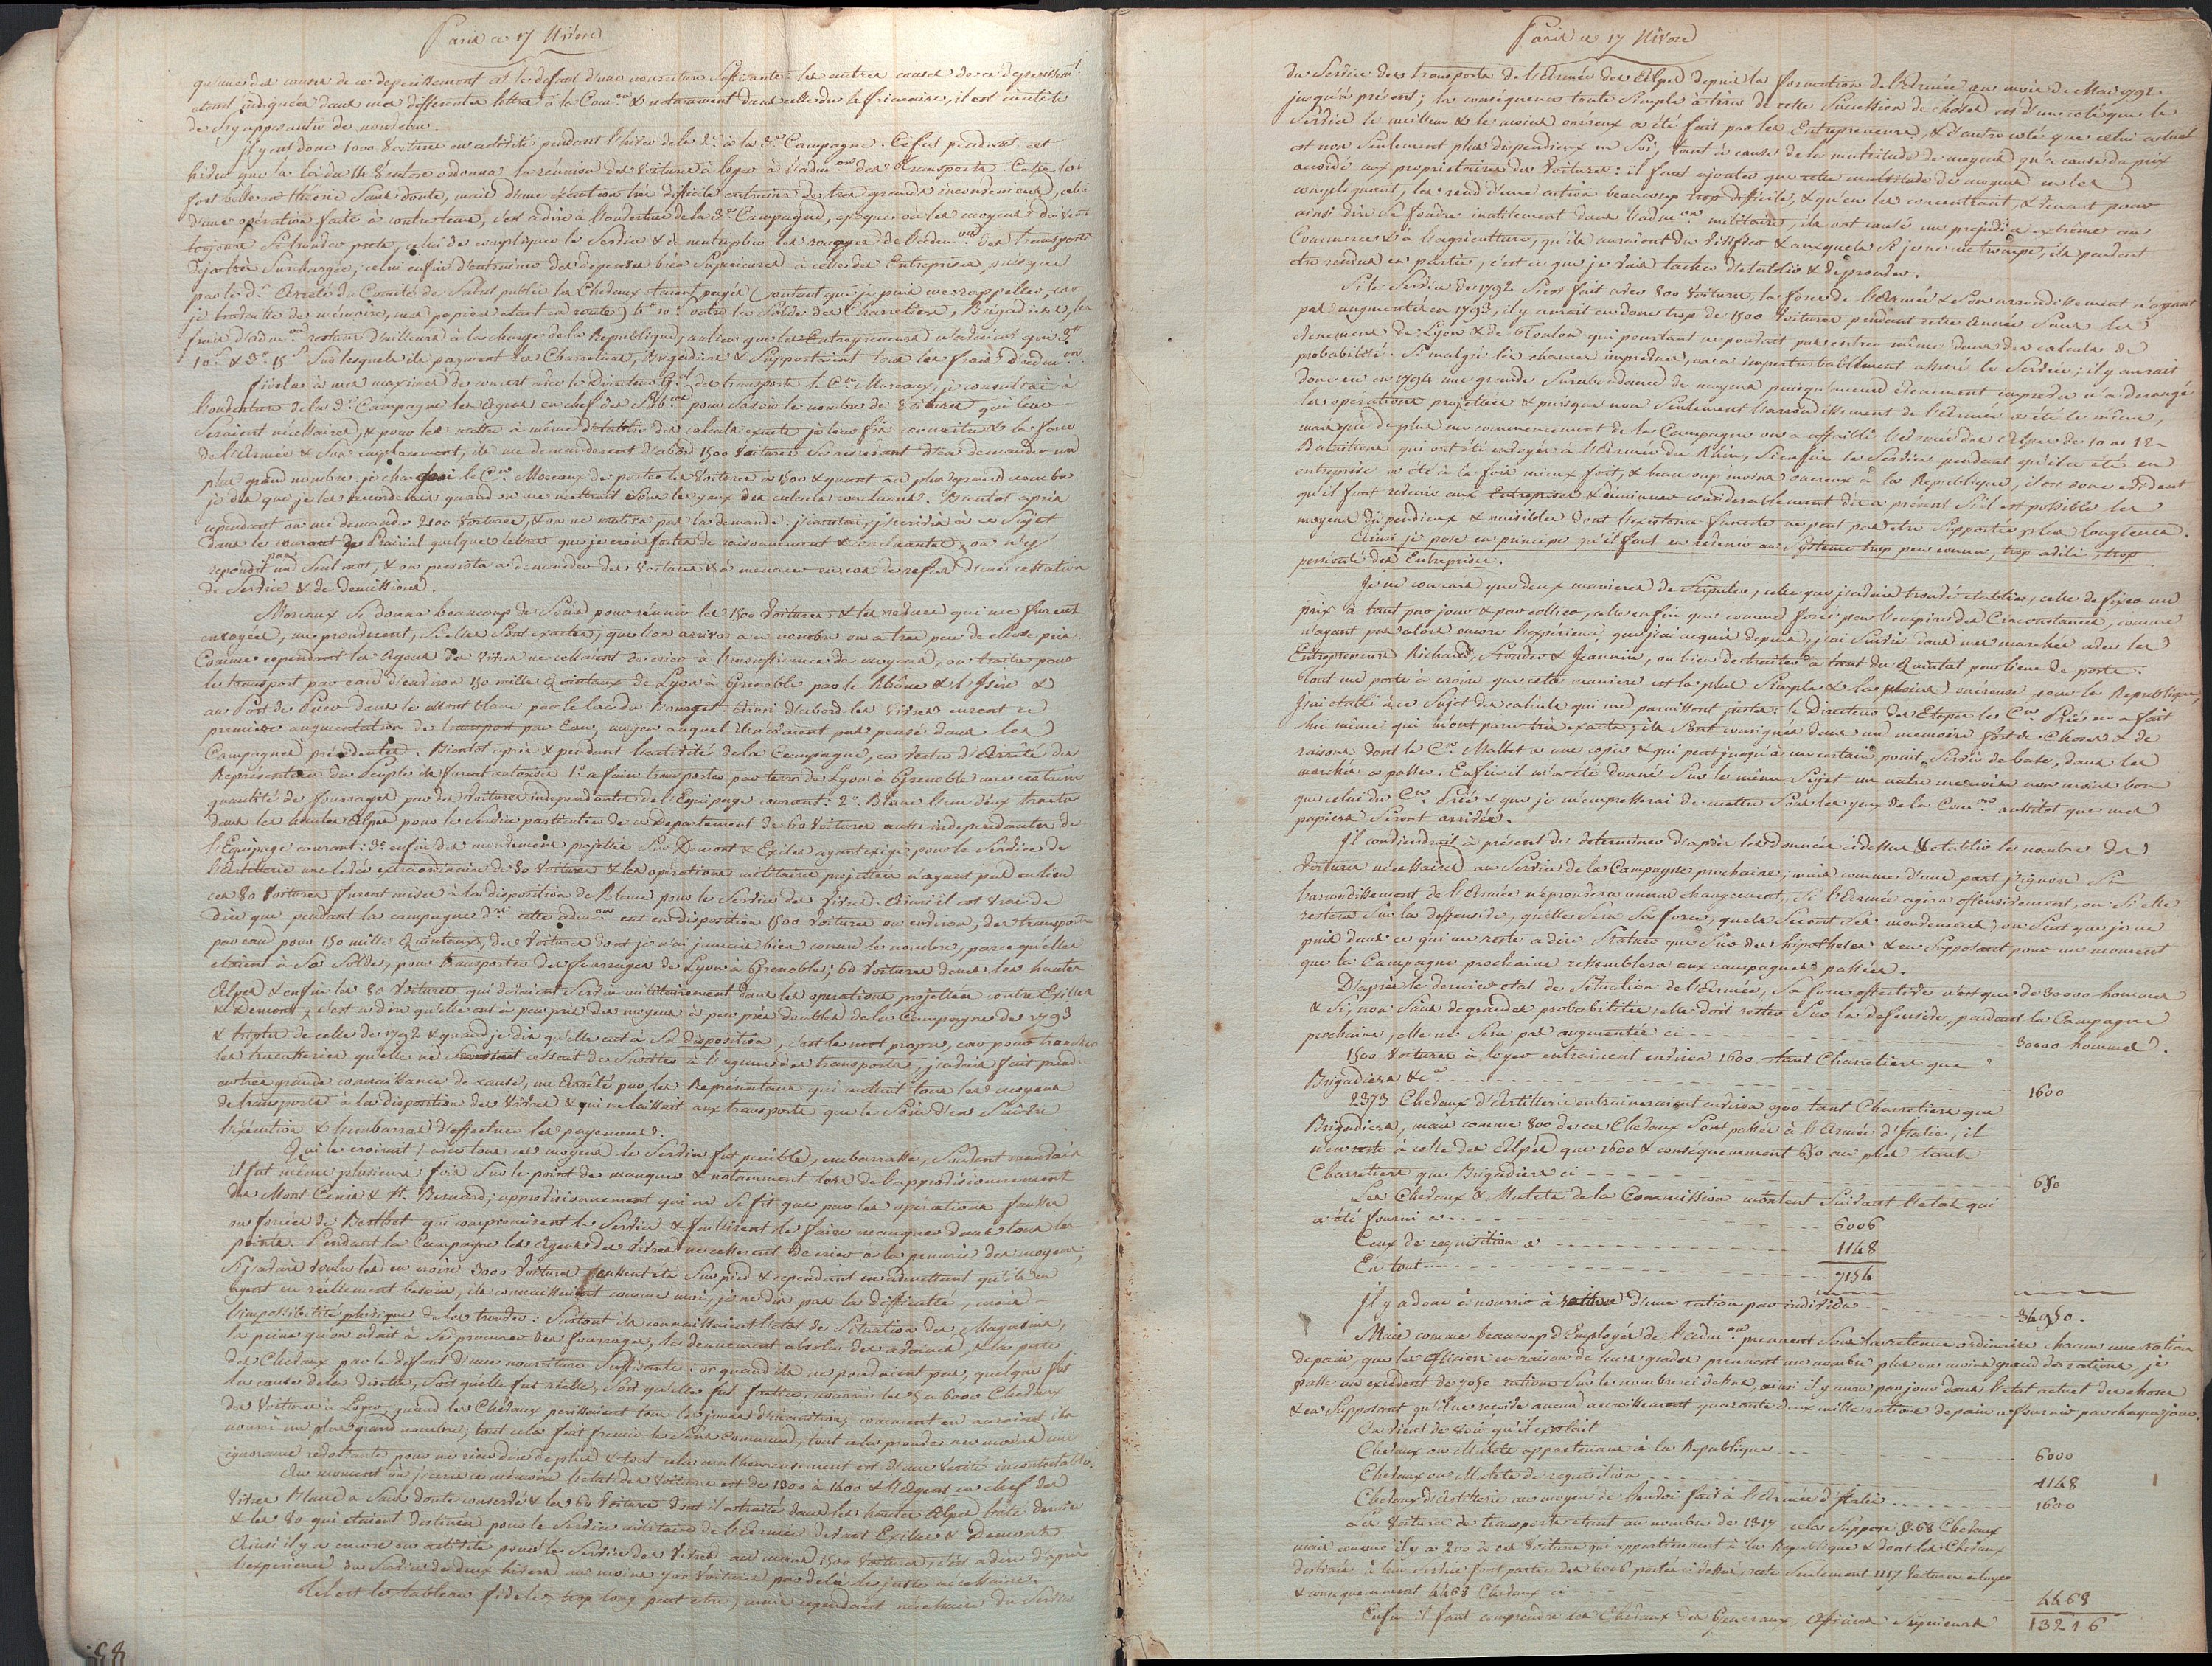 Paris ce 17 Nivose
qu'une des causes de ce deperissement est le defaut d'une nourriture suffisante: les autres causes de ce deperissemt.
etant indiquées dans mes differentes lettres à la Comon. & notamment dans celle du 16 frimaire, il est inutile
de s'y appesantir de nouveau.
Il y eut donc 1000 Voitures en activité pendant l'hiver de la 2e. à la 3e. Campagne. Ce fut pendant cet
hiver que la loi du 14 Ventose ordonna la réunion des Voitures à loyer à l'admon. des transports. Cette loi
fort belle en théorie sans doute, mais d'une exécution très difficile entraina de tres grands inconveniens, celui
d'une opération faite à contre tems, c'est à dire à l'ouverture de la 3e. Campagne, epoque où les moyens doivent
toujours se trouver prets, celui de compliquer le Service & de multiplier les rouages de l'admon. des transports
deja très surchargée; celui enfin d'entrainer des depenses bien superieures à celles des Entreprises, puisque
par le d. Arreté du Comité de Salut public les Chevaux étaient payés (autant que je puis me rappeller, car
je travaille de mémoire, mes papiers etant en route) 6tt 10s. outre la Solde des Charretiers, Brigadiers, les
frais d'admon. restant d'ailleurs à la charge de la Republique, au lieu que les Entrepreneurs n'avaient que 3tt
10s. & 3tt 15s. sur lesquels ils payaient les Charretiers, Brigadiers & Supportaient tous les frais d'admon.
Fidele à mes maximes de concert avec le Directeur Gal. des transports le Cen. Moreaux, je consultai à
l'ouverture de la 3e. Campagne les Agens en chef des Subces. pour Savoir le nombre de Voitures qui leur
Seraient nécessaires, & pour les mettre à même d'etablir des calculs exacts je leur fis connaitre & la force
de l'Armée & Son emplacement, ils me demanderent d'abord 1500 Voitures se reservant d'en demander un
plus grand nombre. je chargeai le Cen. Moreaux de porter les Voitures à 1500 & quant au plus grand nombre
je dis que je les accorderais quand on me mettrait Sous les yeux des calculs concluans. Bientot après
cependant on me demanda 2100 Voitures, & on ne motiva pas la demande. j'insistai, j'ecrivis à ce Sujet
dans le courant de Prairial quelques lettres que je crois fortes de raisonnement & concluantes, on n'y
repondit pas un Seul mot, & on persista à demander des Voitures & à menacer en cas de refus d'une cessation
de Service & de demissions.
Moreaux se donna beaucoup de Soins pour réunir les 1500 Voitures & les revues qui me furent
envoyées, me prouverent, si elles Sont exactes, que l'on arriva à ce nombre ou a tres peu de chose près.
Comme cependant les Agens des Vivres ne cessaient de crier à l'insuffisance de moyens, on traita pour
le transport par eau d'environ 150 mille Quintaux de Lyon à Grenoble par le Rhône & l'Isère &
au Port de Puer dans le Mont blanc par le lac du Bourget. Ainsi d'abord les Vivres eurent ce
premiere augmentation de transport par Eau, moyen auquel ils n'avaient pas pensé dans les
Campagnes précedentes. Bientot après & pendant l'activité de la Campagne, en Vertu d'Arretés des
Représentans du Peuple ils furent autorisés 1o. a faire transporter par terre de Lyon à Grenoble une certaine
quantité de fourrages par des Voitures independantes de l'Equipage courant: 2o. Blanc l'un d'eux traita
dans les hautes Alpes pour le Service particulier de ce Departement de 60 Voitures aussi independantes de
l'Equipage courant: 3o. enfin des mouvements projettés Sur Demont & Exiles ayant exigé pour le Service de
l'Artillerie une levée extraordinaire de 80 Voitures & les operations militaires projettées n'ayant pas eu lieu
ces 80 Voitures furent mises à la disposition de Blanc pour le Service des Vivres. Ainsi il est vrai de
dire que pendant la campagne dre. cette admon. eut en disposition 1500 Voitures ou environ, des transports
par eau pour 150 mille Quintaux, des Voitures dont je n'ai jamais bien connu le nombre, parce qu'elles
etaient à Sa Solde, pour transporter des fourrages de Lyon à Grenoble; 60 Voitures dans les hautes
Alpes & enfin les 80 Voitures qui devaient Servir militairement dans les operations projettées contre Exiles
& Demont, c'est a dire qu'elle eut à peu près des moyens à peu près doubles de la Campagne de 1793
& triples de celle de 1792 & quand je dis qu'elle eut a Sa disposition, c'est le mot propre, car pour trancher
les tracasseries qu'elle ne cessait de Susciter à l'agence des transports, j'avais fait prendre
en très grande connaissance de cause, un Arrêté par les Représentans qui mettait tous les moyens
de transports à la disposition des Vivres & qui ne laissait aux transports que le Soin d'en Suivre
l'exécution & l'embarras d'effectuer les payemens.
Qui le croirait! avec tous ces moyens le Service fut penible, embarrassé, Souvent
il fut même plusieurs fois Sur le point de manquer & notamment lors de l'approvisionnement
du Mont Cenis & St. Bernard; approvisionnement qui ne se fit que par les opérations fausses
ou forcées de Berthet qui compromirent le Service & faillirent le faire manquer dans tous les
points. Pendant la Campagne les Agens des Vivres ne cesserent de crier à la penurie des moyens,
Si j'avais voulu les en croire 3000 Voitures eussent été Sur pied & cependant en admettant qu'ils en
ayent eu réellement besoin, ils connaissaient comme moi, je ne dis pas la difficulté, mais
l'impossibilité phisique de les trouver: Surtout ils connaissaient l'etat de Situation des Magasins,
la peine qu'on avait à se procurer des fourrages, le denuement absolu des avoines & la perte
des Chevaux par le défaut d'une nourriture Suffisante: or quand ils ne pouvaient pas, quelque fut
la cause de la disette, soit qu'elle fut réelle, Soit qu'elle fut factice, nourrir les 5 a 6000 Chevaux
des Voitures à Loyer, quand les Chevaux perissaient tous les jours d'inanition, comment en auraient ils
nourri un plus grand nombre; tout cela fait fremir le Sens Commun, tout cela prouve au moins une
ignorance revoltante pour ne rien dire de plus & tout cela malheureusement est d'une Verité incontestable.
Au moment où j'ecris ce mémoire l'etat des Voitures est de 1300 à 1400 & l'Agent en chef des
Vivres Blanc a Sans doute conservé & les 60 Voitures dont il a traité dans les hautes Alpes l'été dernier
& les 80 qui etaient destinées pour le Service militaire de l'Armée devant Exiles & Demont
Ainsi il y a encore en activité pour le Service des Vivres au moins 1500 Voitures, c'est a dire d'après
l'experience du Service de deux hivers au moins 700 Voitures par delà le juste nécessaire.
Tel est le tableau fidele, trop long peut etre, mais cependant nécessaire du Service
Paris ce 17 Nivose
du Service des transports de l'Armée des Alpes depuis la formation de l'Armée au mois de Mai 1792.
jusqu'à présent; la conséquence toute Simple à tirer de cette Succession de choses est d'un coté que le
Service le meilleur & le moins onéreux a été fait par les Entrepreneurs, & d'autre coté que celui actuel
est non seulement plus dispendieux en Soi, tant à cause de la multitude de moyens qu'a cause du prix
accordé aux propriétaires des Voitures: il faut ajouter que cette multitude de moyens en les
compliquant, les rend d'une action beaucoup trop difficile, & qu'en les concentrant, & venant pour
ainsi dire Se fondre inutilement dans l'admon. militaire, ils ont causé un prejudice extrême au
Commerce & à l'agriculture, qu'ils auraient du vivifier & auxquels si je ne me trompe, ils peuvent
etre rendus en partie, c'est ce que je vais tacher d'etablir & de prouver.
Si le Service de 1792 s'est fait avec 800 Voitures, la force de l'Armée & Son arrondissement n'ayant
pas augmenté en 1793, il y aurait eu donc trop de 1500 Voitures pendant cette Année Sans les
evenemens de Lyon & de Toulon qui pourtant ne pouvait pas entrer même dans des calculs de
probabilité. Si malgré les chances imprévues, on a imperturbablement assuré le Service; il y aurait
donc eu en 1794 une grande Surabondance de moyens puisqu'aucun évenement imprévu n'a derangé
les operations projettées & puisque non Seulement l'arrondissement de l'Armée a été le même,
mais que de plus au commencement de la Campagne on a affaibli l'Armée des Alpes de 10 a 12
Bataillons qui ont été envoyés à l'Armée du Rhin, si enfin le Service pendant qu'il a été en
entreprise a été à la fois mieux fait, & beaucoup moins onereux à la Republique, il est donc evident
qu'il faut revenir aux Entreprises & diminuer considerablement dès a present s'il est possible les
moyens dispendieux & nuisibles dont l'existence funeste ne peut pas etre Supportée plus longtems.
Ainsi je pose en principe qu'il faut en revenir au Systeme trop peu connu, trop avili, trop
persecuté des Entreprises.
Je ne connais que deux manieres de Stipuler, celle que j'avais trouvé etablie, celle de fixer un
prix à tant par jour & par collier, celle enfin que comme forcé par l'empire des Circonstances, comme
n'ayant pas alors encore l'expérience que j'ai acquis depuis, j'ai Suivie dans mes marchés avec les
Entrepreneurs Richard, & Jeannin, ou bien de traiter à tant du Quintal par lieue de poste.
Tout me porte à croire que cette maniere est la plus Simple & la moins onéreuse pour la Republique,
J'ai etabli à ce Sujet des calculs qui me paraissent justes: le Directeur des Etapes le Cen. Prié en a fait
lui même qui m'ont paru très exacts; ils Sont consignés dans un memoire fort de Choses & de
raisons dont le Cen. Mallet a une copie & qui peut jusqu'à un certain point Servir de base, dans les
marchés a passer. Enfin il m'a été donné Sur le même Sujet un autre memoire non moins bon
que celui du Cen. Prié & que je m'empresserai de mettre Sous les yeux de la Comon. aussitot que mes
papiers Seront arrivés.
Il conviendrait à présent de determiner d'après les données ci dessus & etablir le nombre de
Voitures nécessaires au Service de la Campagne prochaine; mais comme d'une part j'ignore Si
l'arrondissement de l'Armée n'eprouvera aucun changement, Si l'Armée agira offensivement, ou Si elle
restera Sur la deffensive, qu'elle Sera Sa force, quels Seront Ses mouvemens; on Sent que je ne
puis dans ce qui me reste a dire Statuer que Sur des hipotheses & en Supposant pour un moment
que la Campagne prochaine ressemblera aux campagnes passées.
D'après le dernier etat de Situation de l'Armée, Sa force effective n'est que de 30000 hommes
& Si, non Sans de grandes probabilités, elle doit rester Sur la defensive, pendant la Campagne
prochaine, elle ne Sera pas augmentée ci - - - 30000 hommes.
1500 Voitures à loyer entrainent environ 1600 tant Charretiers que
Brigadiers &ca. - - - 1600
2373 Chevaux d'Artillerie entraineraient environ 900 tant Charretiers que
Brigadiers, mais comme 800 de ces Chevaux Sont passés à l'Armée d'Italie, il
n'en reste à celle des Alpes que 1600 & conséquemment 650 au plus tant
Charretiers que Brigadiers ci - - - 650
Les Chevaux & Mulets de la Commission montent Suivant l'etat qui
a été fourni à - - - 6006
Ceux de requisition à - - - 1148
En tout - - - 7154
Il y a donc à nourrir à raison d'une ration par individu - - - 34950.
Mais comme beaucoup d'Employés de l'admon. prennent Sous la retenue ordinaire chacun une ration
de pain, que les officiers en raison de leurs grades prennent un nombre plus ou moins grand de rations, je
passe un excédent de 7050 rations Sur le nombre ci dessus, ainsi il y aura par jour dans l'etat actuel des choses
& en Supposant qu'il ne survienne aucun accroissement quarante deux mille rations de pain a fournir par chaque jour.
On vient de voir qu'il existait
Chevaux ou Mulets appartenans à la Republique - - - 6000
Chevaux ou Mulets de requisition - - - 1148
Chevaux d'Artillerie au moyen de l'envoi fait à l'Armée d'Italie - - - 1600
Les Voitures de transports etant au nombre de 1317 cela Suppose 5268 Chevaux
mais comme il y a 200 de ces Voitures qui appartiennent à la Republique & dont les Chevaux
destinés à leur Service font partie des 6006 portés ci dessus, reste Seulement 1117 Voitures a loyer
& conséquemment 4468 Chevaux ci - - - 4468
13216
Enfin il faut comprendre les Chevaux des Generaux, Officiers Superieurs